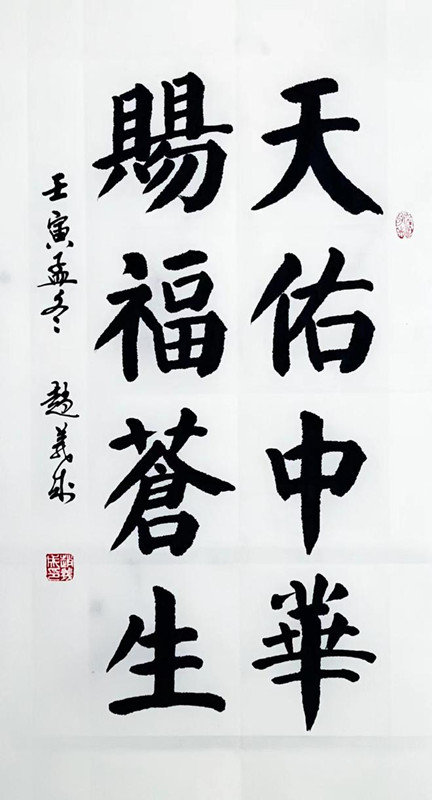 天佑中華
賜福蒼生
壬寅孟冬 趙義成